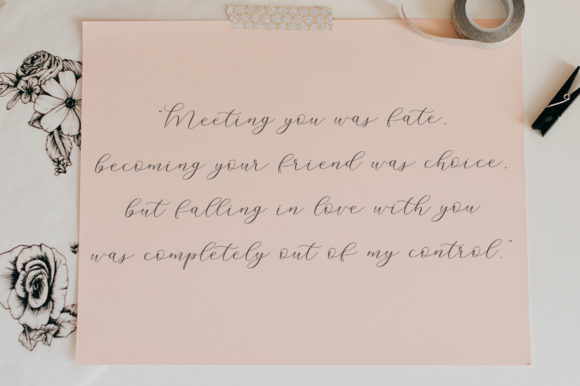 "Meeting you was fate,
becoming your friend was choice,
but falling in love with you
was completely out of my control."